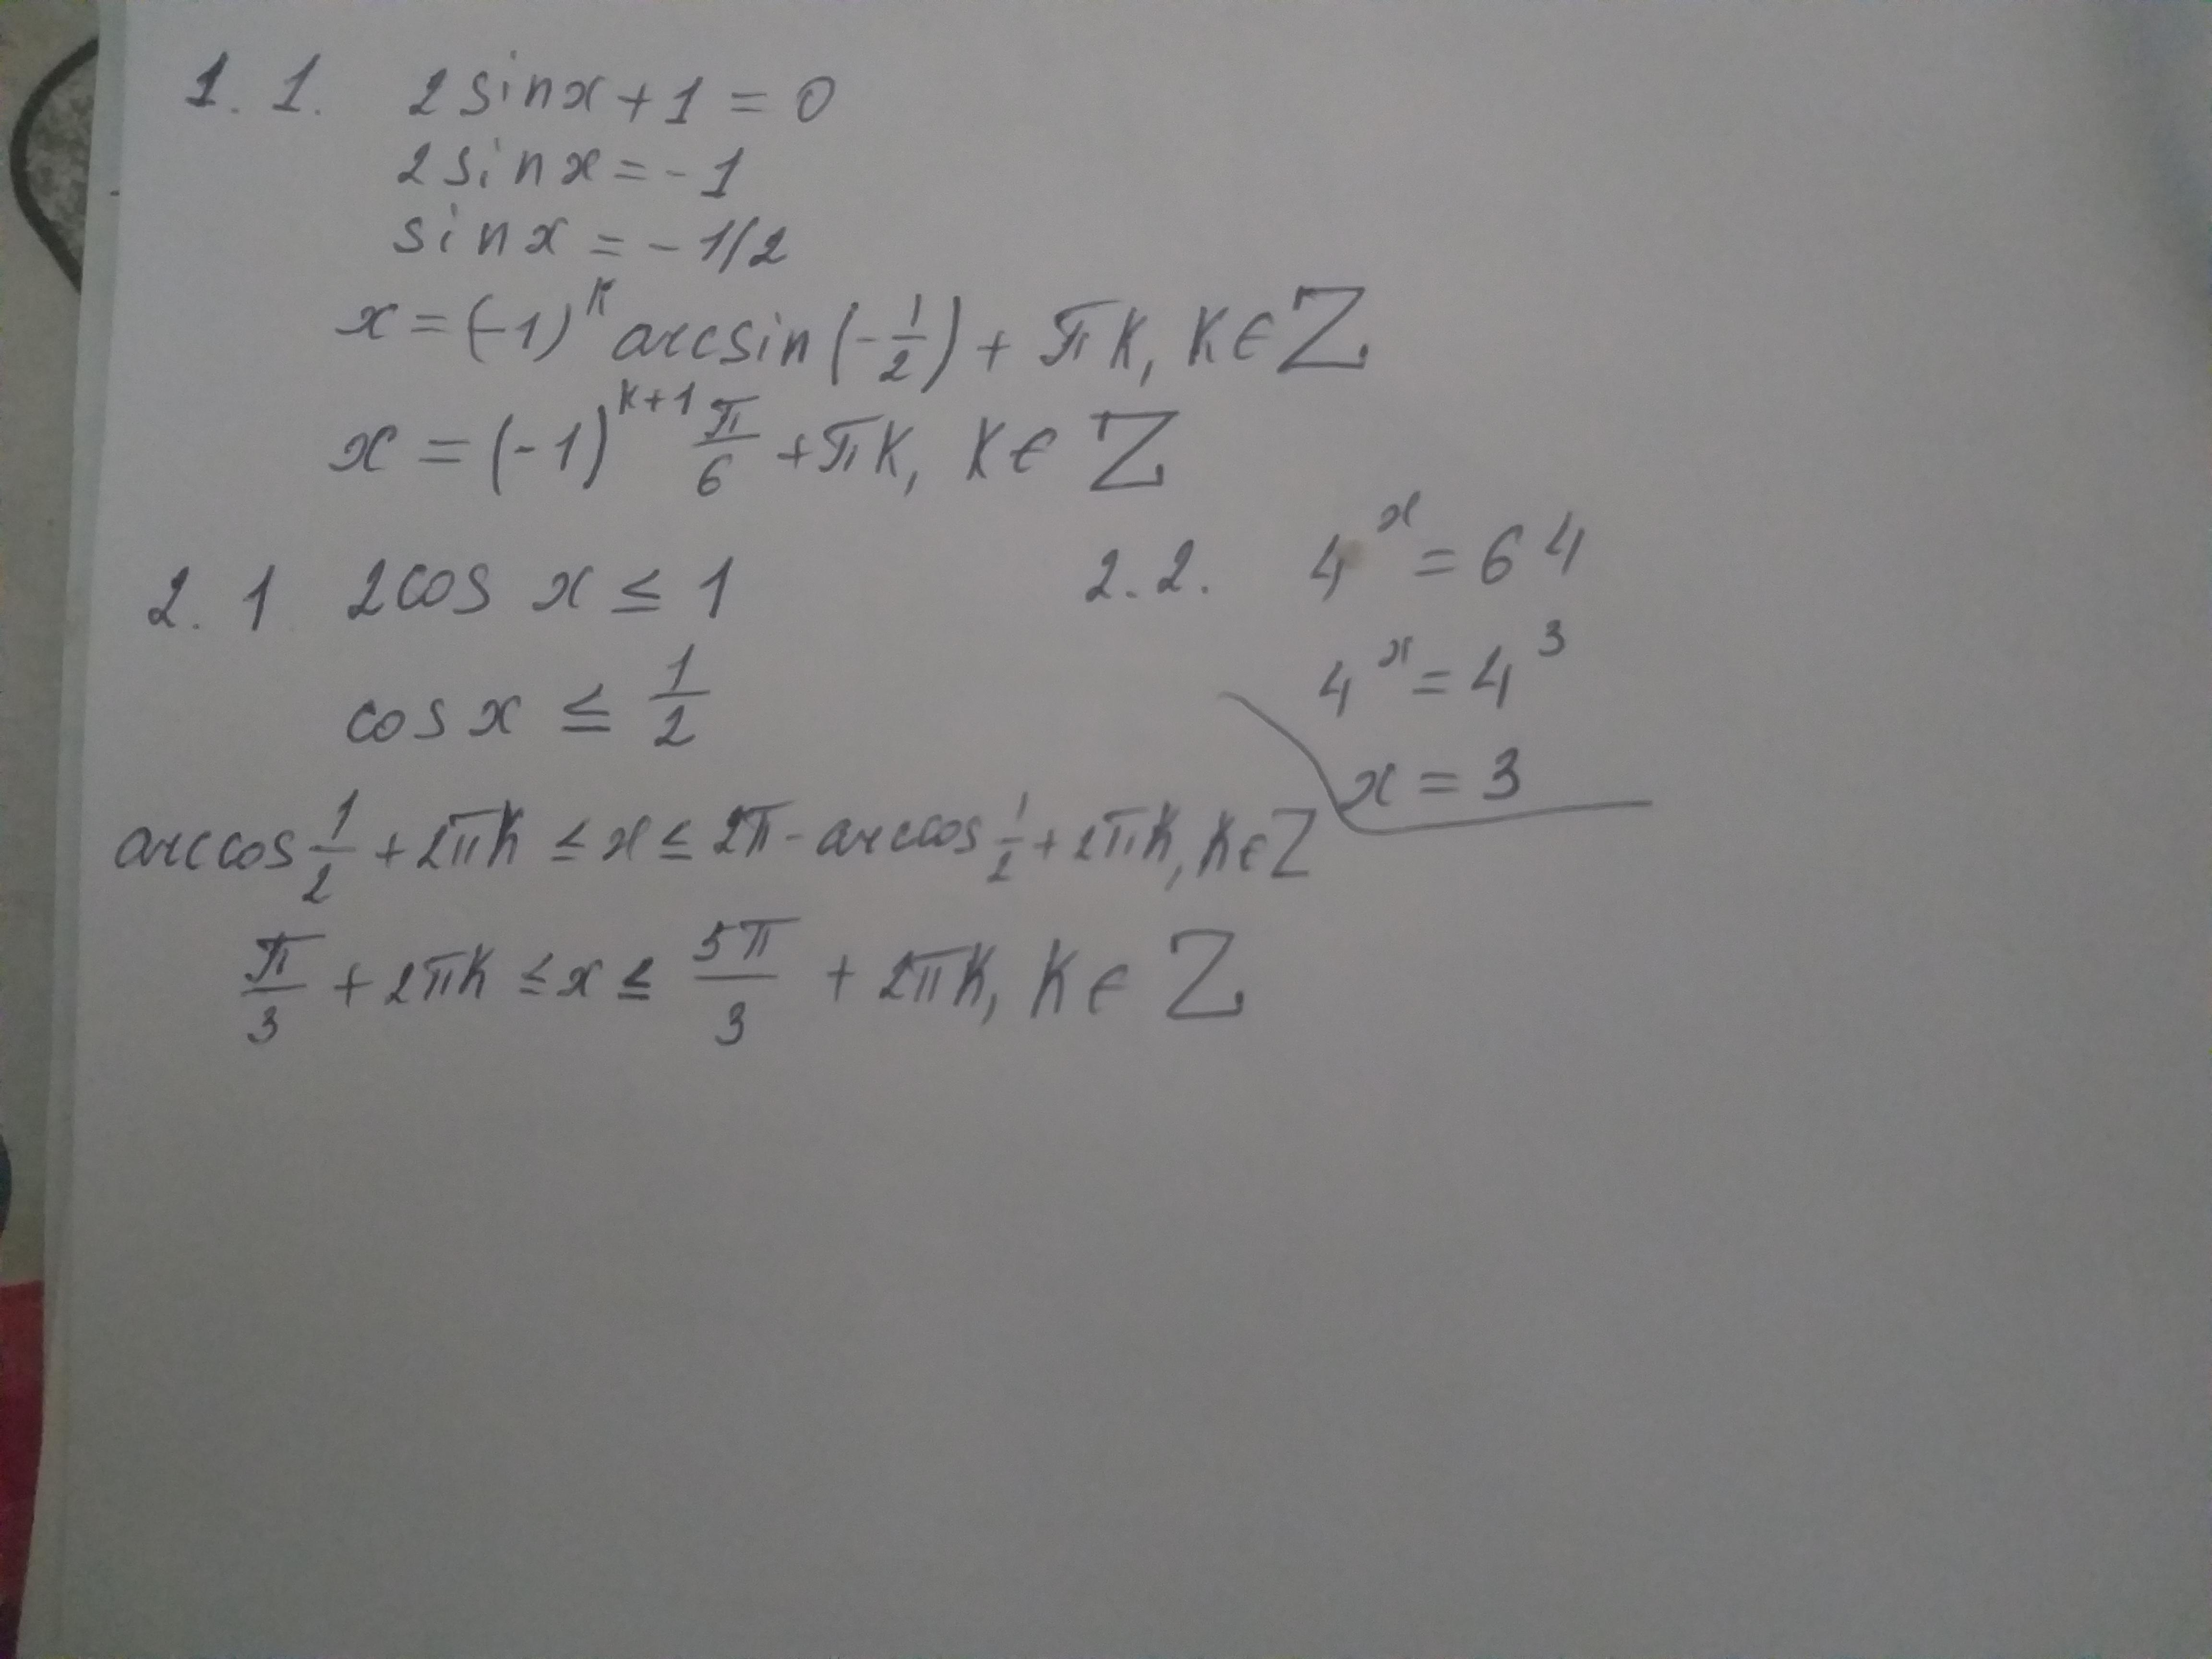 1. 1. 2 sinx + 1 = 0
2 sin x = - 1
sin x = - 1/2
x = (-1)^k arcsin(-1/2) + πk, k ∈ Z
x = (-1)^(k+1) π/6 + πk, k ∈ Z
2. 1 2cos x ≤ 1
cos x ≤ 1/2
arccos 1/2 + 2πk ≤ x ≤ 2π - arccos 1/2 + 2πk, k ∈ Z
π/3 + 2πk ≤ x ≤ 5π/3 + 2πk, k ∈ Z
2. 2. 4^x = 64
4^x = 4^3
x = 3